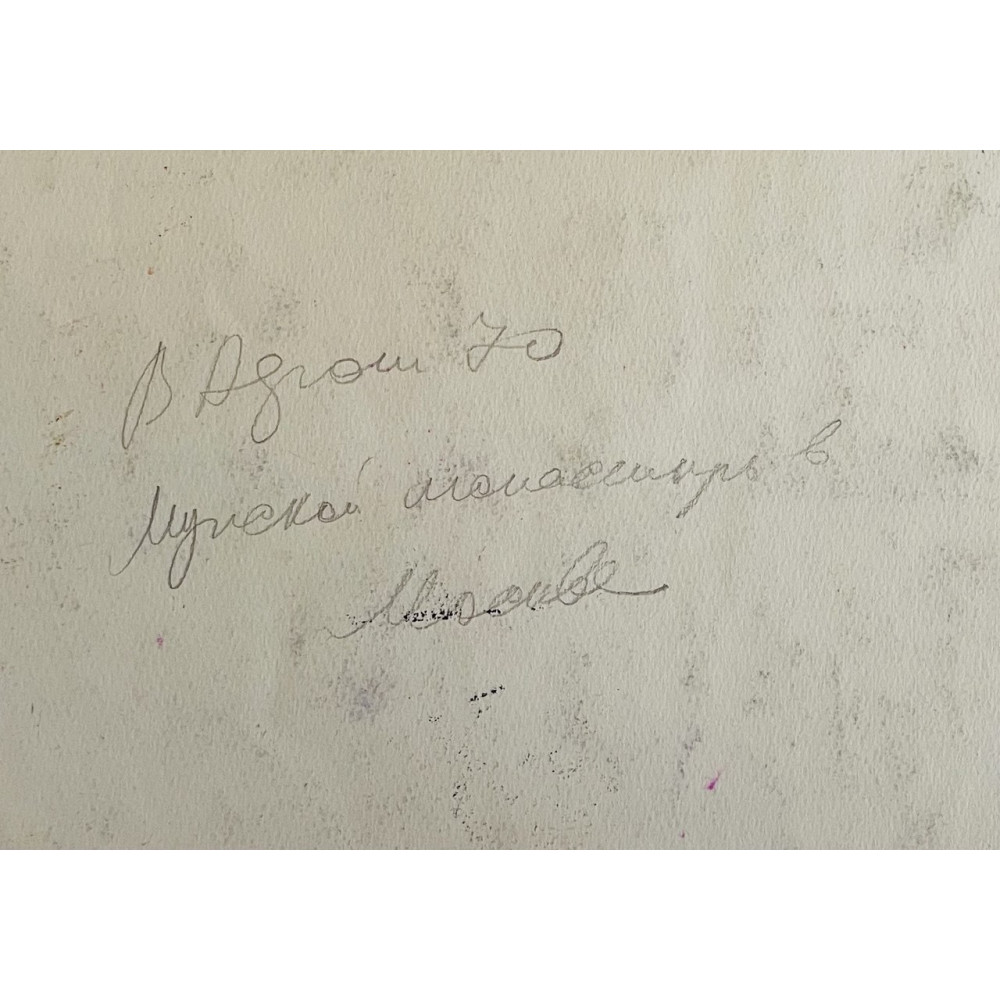 В Адгош 70
Мужской монастырь в
Москве